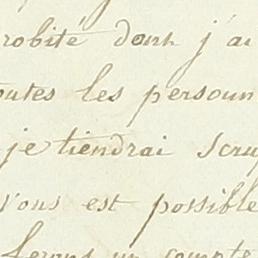 robité dont j'ai
outes les person
je tiendrai scru
vous est possible
ferons un compte